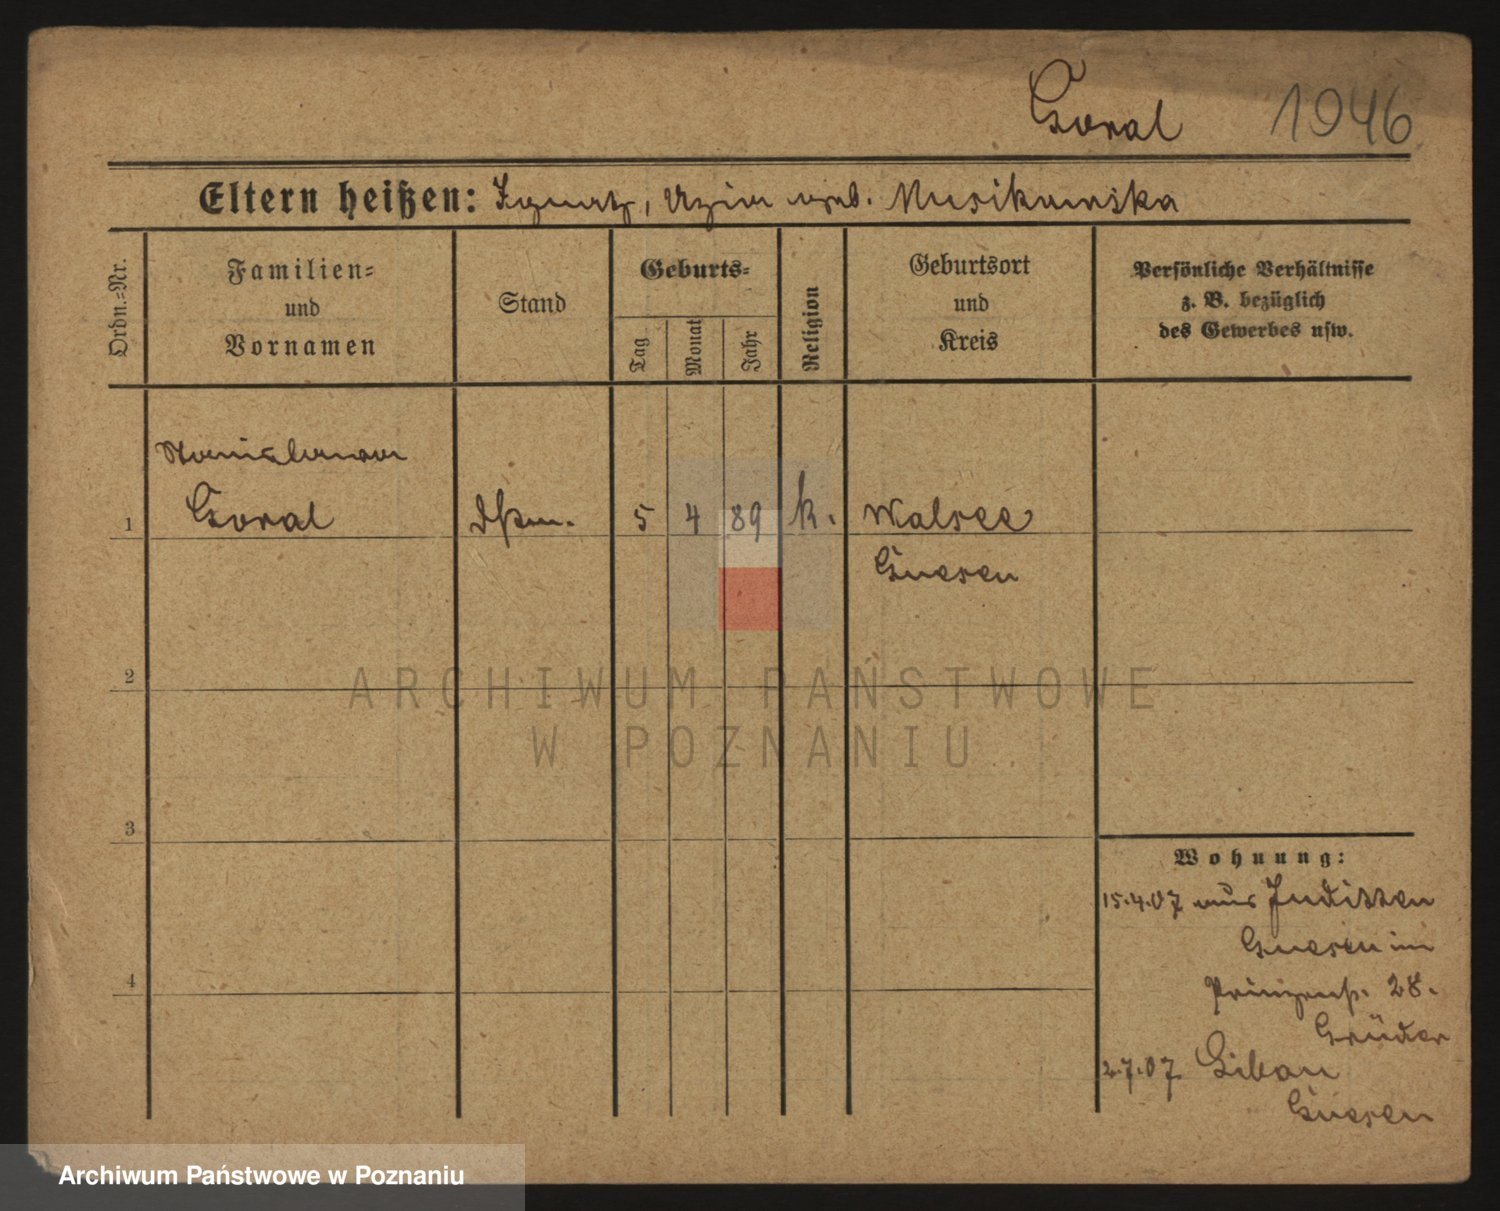 Goral 1946
Eltern heißen: Ignatz, geb. Musikowska
Ordn.=Nr.
Familien=
und
Vornamen
Stand
Geburts=
Tag
Monat
Jahr
Religion
Geburtsort
und
Kreis
Persönliche Verhältnisse
z. B. bezüglich
des Gewerbes usw.
Stanislawa
1 Goral 5 4 89 k. Walsee
Gnesen
2
3
4
Wohnung:
15.4.07 aus Juditten
Gnesen in
Prinzenst. 28.
Grüder
2.7.07 Libau
Gnesen
ARCHIWUM PAŃSTWOWE
W POZNANIU
Archiwum Państwowe w Poznaniu